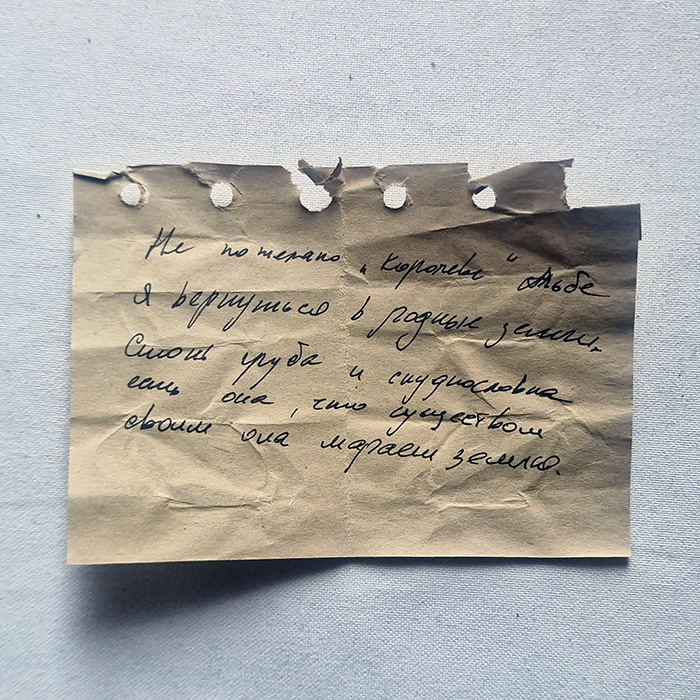 Не пожелаю „Королеве" Альбе
я вернуться в родные земли.
Столь груба и скудословна
есть она, что существом
своим она марает землю.